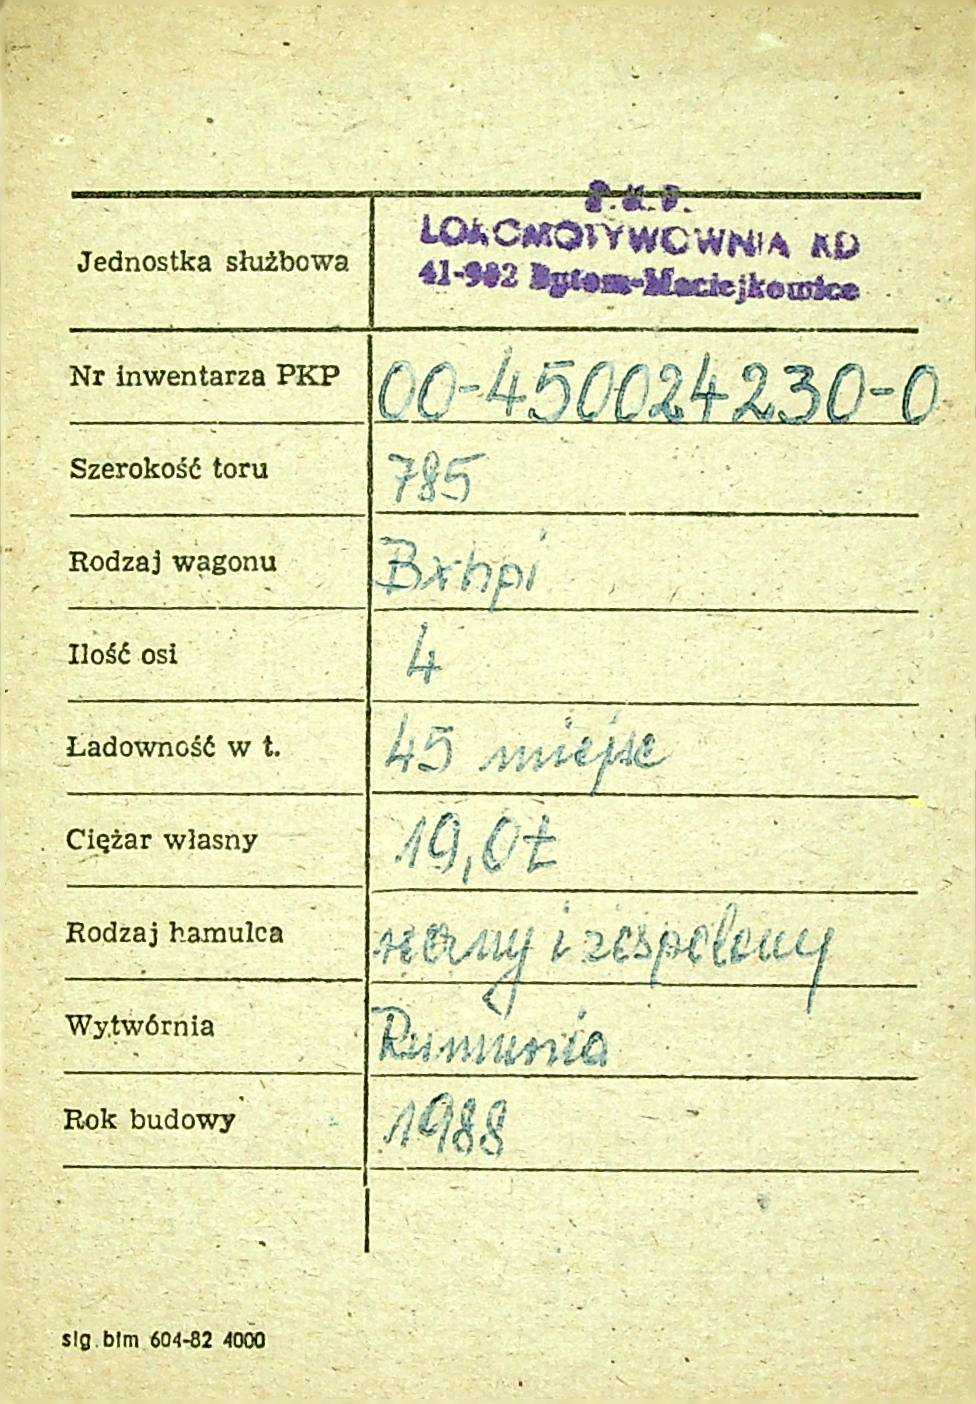 P.K.P.
LOKOMOTYWOWNIA KD
Jednostka służbowa
41-902 Bytom-Maciejkowice
Nr inwentarza PKP 00-450024230-0
Szerokość toru 785
Rodzaj wagonu Bxhpi
Ilość osi 4
Ładowność w t. 45 miejsc
Ciężar własny 19,0t
Rodzaj hamulca ręczny i zespolony
Wytwórnia Rumunia
Rok budowy 1988
slg btm 604-82 4000